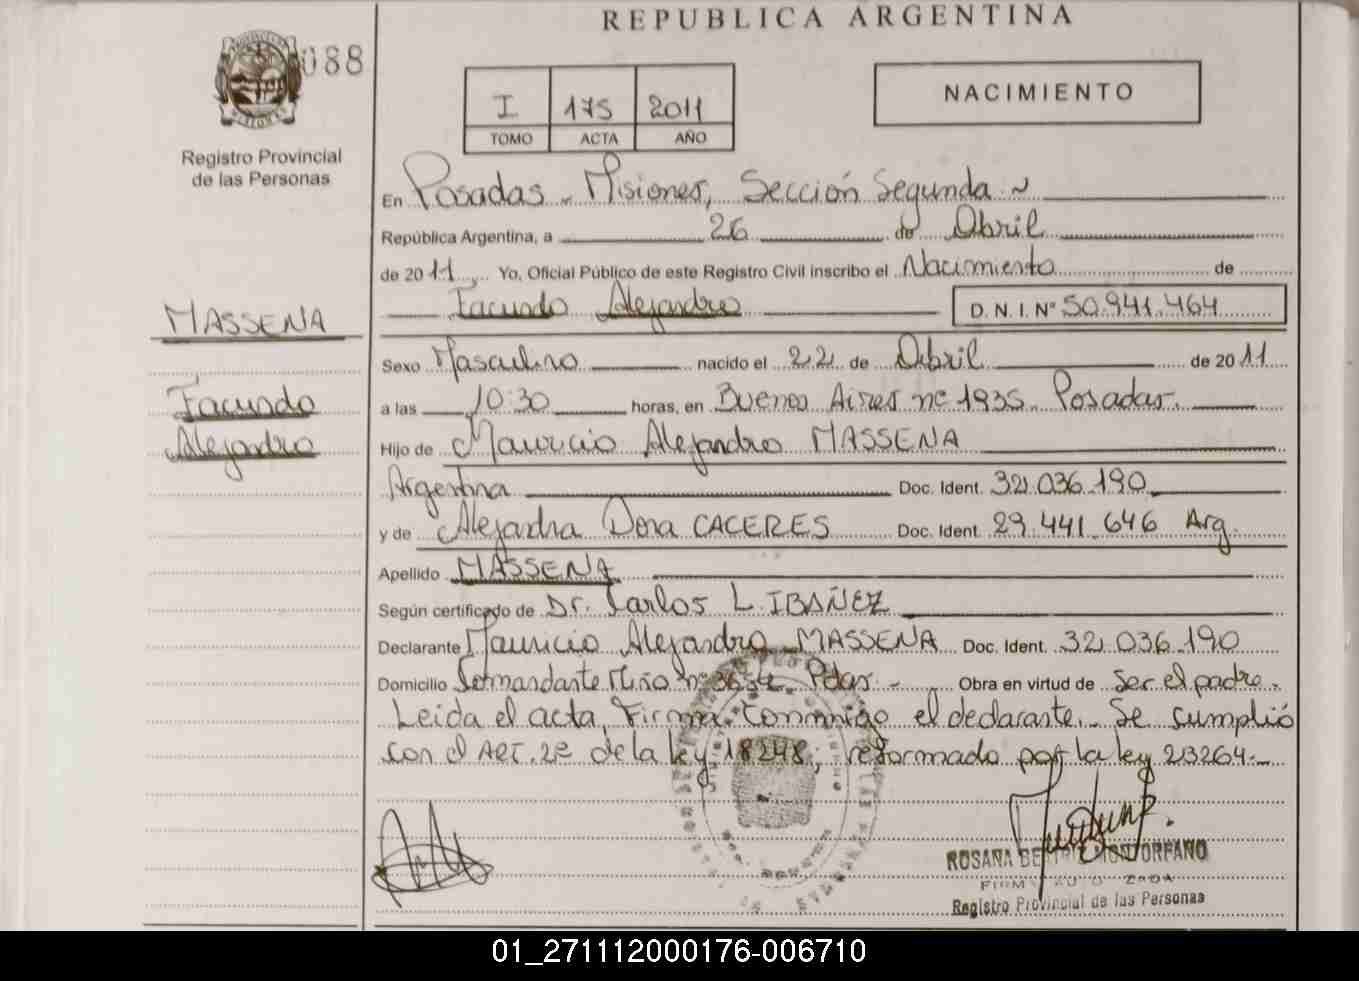 REPUBLICA ARGENTINA
088
Registro Provincial
de las Personas
I 175 2011
TOMO ACTA AÑO
NACIMIENTO
En Posadas - Misiones, Sección Segunda
República Argentina, a 26 de Abril
de 2011 Yo, Oficial Público de este Registro Civil inscribo el Nacimiento de
Facundo Alejandro D. N. I. Nº 50.941.464
MASSENA
Facundo
Alejandro
Sexo Masculino nacido el 22 de Abril de 2011
a las 10:30 horas, en Buenos Aires nº 1935 Posadas.
Hijo de Mauricio Alejandro MASSENA
Argentina Doc. Ident. 32.036.190
y de Alejandra Dora CACERES Doc. Ident. 29.441.646 Arg.
Apellido MASSENA
Según certificado de Dr. Carlos L. IBAÑEZ
Declarante Mauricio Alejandro MASSENA Doc. Ident. 32.036.190
Domicilio Comandante Miño nº Pdas - Obra en virtud de Ser el padre.
Leida el acta, Firma Conmigo el declarante.- Se cumplió
con el Art. 2º de la ley 18248, reformado por la ley 23264.-
ROSANA
Registro Provincial de las Personas
01_271112000176-006710